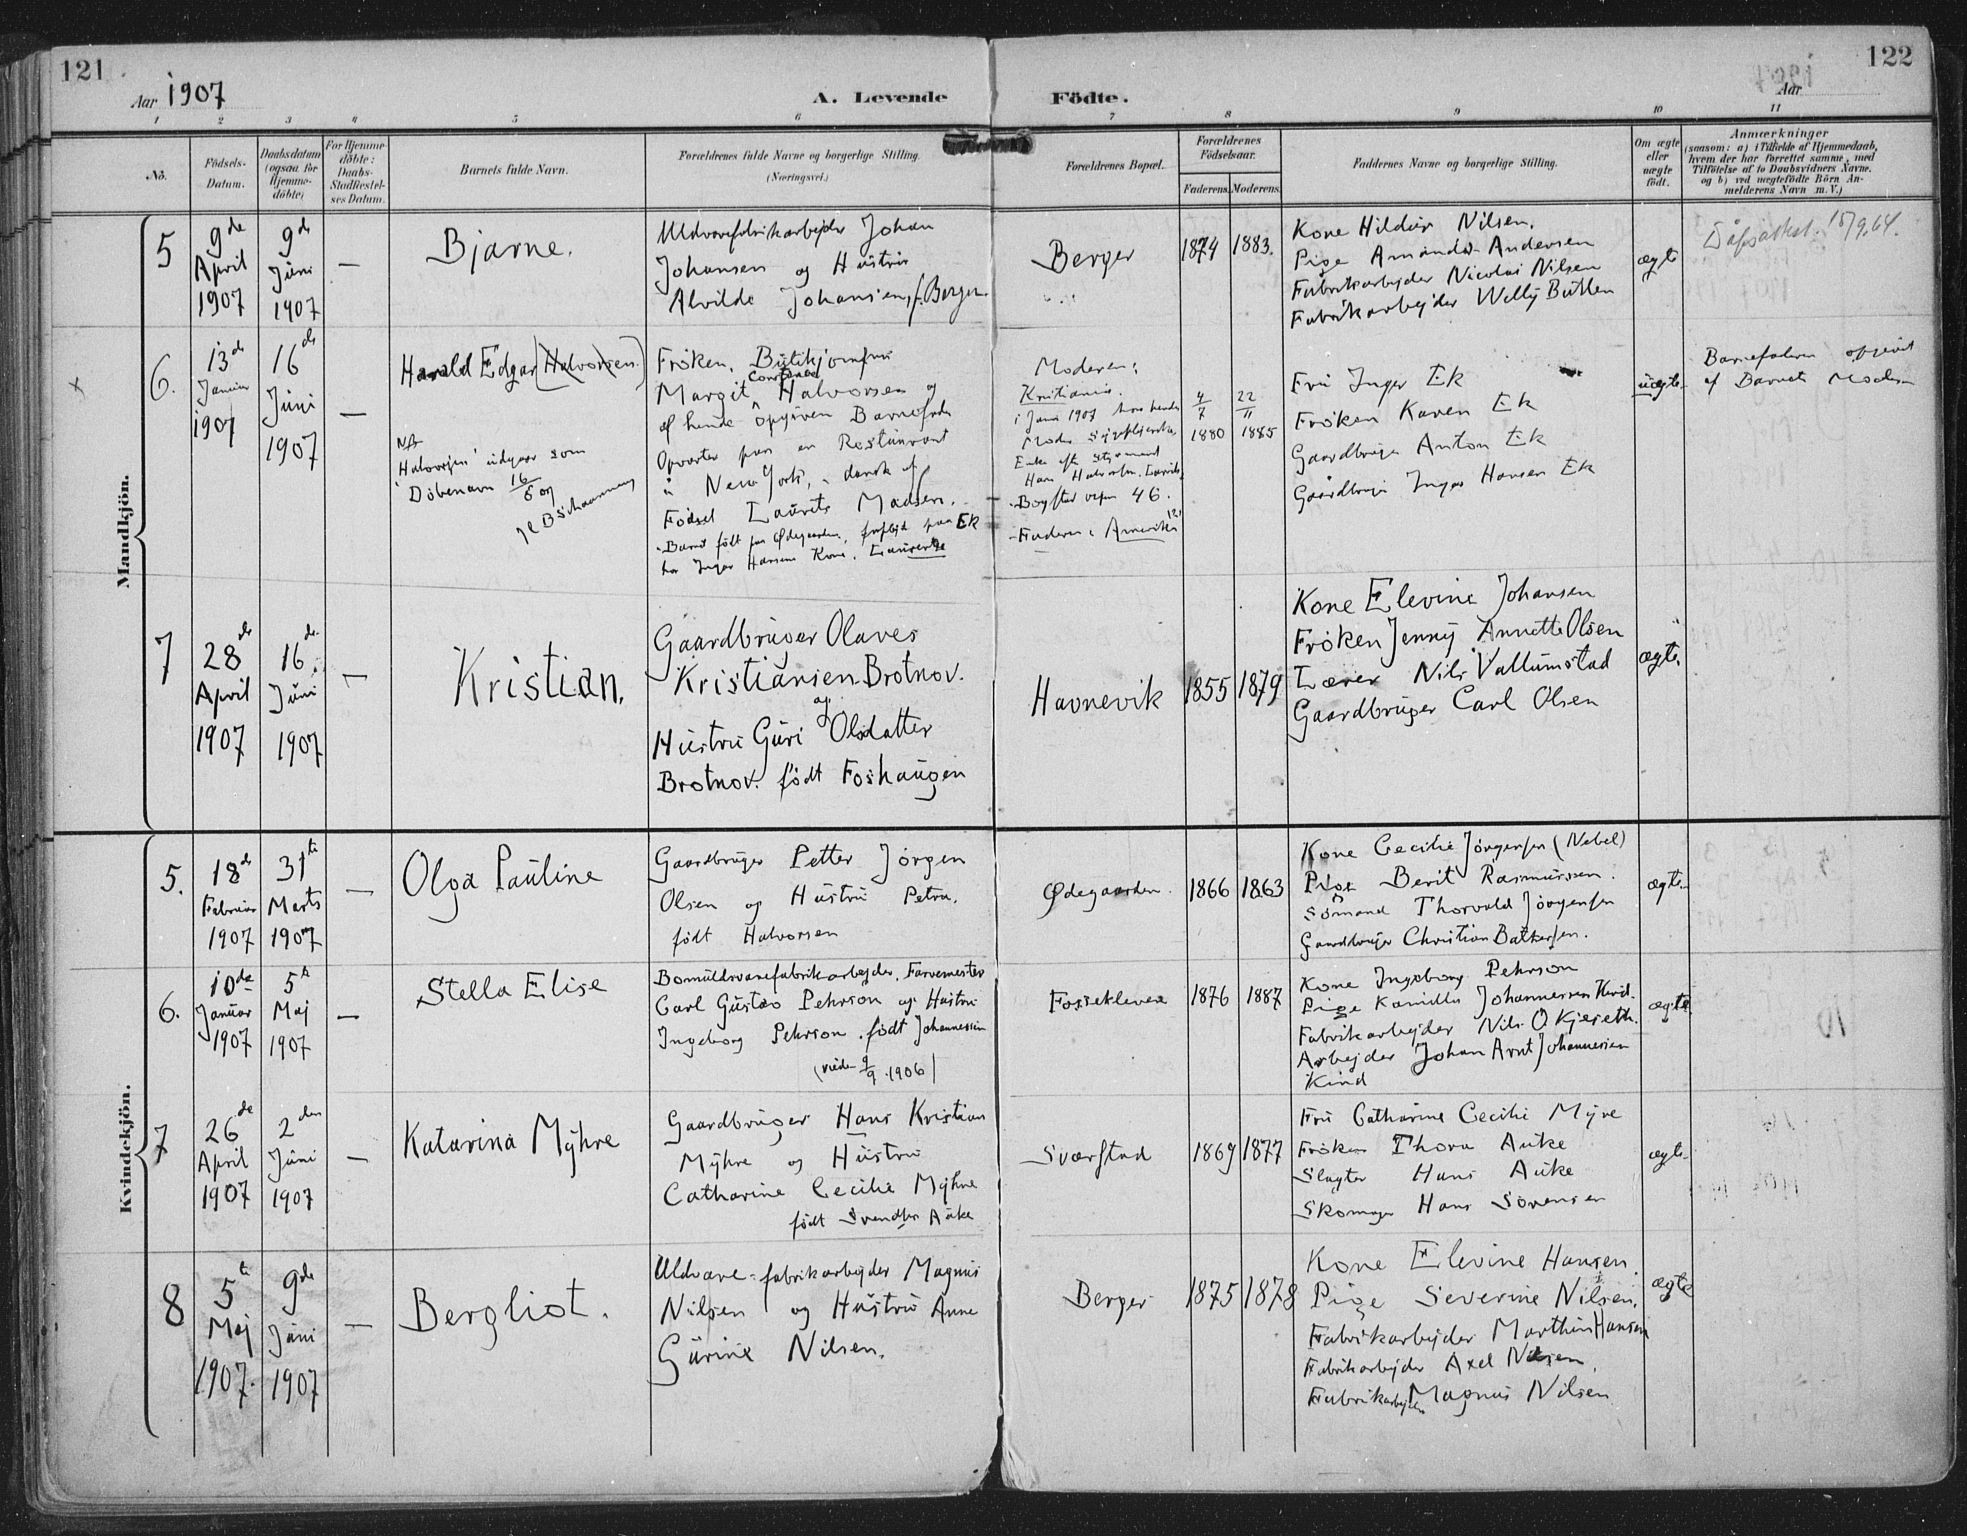 121
Aar 1907
A. Levende Födte.
Aar
122
1 2 3 4 5 6 7 8 9 10 11
No.
Födsels-Datum.
Daabsdatum (ogsaa for Hjemmedöbte)
For Hjemmedöbte: Daabs-Stadfæstelses Datum.
Barnets fulde Navn.
Forældrenes fulde Navne og borgerlige Stilling.
(Næringsvei.)
Forældrenes Bopæl.
Forældrenes Födselsaar.
Faderens. Moderens.
Faddernes Navne og borgerlige Stilling.
Om ægte eller uægte födt.
Anmærkninger
(saasom: a) i Tilfælde af Hjemmedaab, hvem der har forrettet samme, med Tilföielse af to Daabsvidners Navne. og b) ved uægtefödte Börn Anmelderens Navn m. V.)
Mandkjön.
5
9de April 1907
9de Juni 1907
—
Bjarne.
Uldvarefabrikarbejder Johan
Johansen og Hustru
Alvilde Johansen, f. Berger.
Berger
1874
1883.
Kone Hildur Nilsen.
Pige Amanda Andersen
Fabrikarbejder Nicolai Nilsen
Fabrikarbejder Willy Butten
ægte
Dåpsattest 15/9.64.
6.
13de Januar 1907
16de Juni 1907
—
Harald Edgar (Halvorsen.)
NB
"Halvorsen" udgaar som
Döbenavn 16/8 07
Fröken, Butikjomfru
Margit Constance Halvorsen og
af hende opgiven Barnefader
Opvarter paa en Restaurant
i New York, dansk af
Fødsel Laurits Madsen.
Barnet født paa Ødegaarden, paa Ek
hos Inger Hansens Kone, Laurentze
Moderen:
Kristiania.
i Juni 1907 hos hendes
Moder
Enke efter Styrmand
Hans Halvorsen
Bogstadvejen 46.
Faderen: Amerika (?)
4/7 1880
22/11 1885
Fru Inger Ek
Fröken Karen Ek
Gaardbruger Anton Ek
Gaardbruger Inger Hansen Ek
uægte
Barnefaderen opgivet
af Barnets Moder
7
28de April 1907
16de Juni 1907
—
Kristian.
Gaardbruger Olaves
Kristiansen Brotnov.
og
Hustru Guri Olsdatter
Brotnov. født Foshaugen
Havnevik
1855
1879
Kone Elevine Johansen
Fröken Jenny Annette Olsen
Lærer Nils Vallumstad
Gaardbruger Carl Olsen
ægte.
Kvindekjön.
5.
18de Februar 1907
31te Marts 1907
—
Olga Pauline
Gaardbruger Petter Jörgen
Olsen og Hustru Petra,
født Halvorsen
Ødegaarden.
1866
1863
Kone Cecilie Jörgensen (Nebel)
Pige Berit Rasmussen.
Sömand Thorvald Jörgensen
Gaardbruger Christian Bakkesen.
ægte
6.
10de Januar 1907
5te Maj 1907
—
Stella Elise
Bomuldsvarefabrikarbejder, Farvemester
Carl Gustav Pehrson og Hustru
Ingeborg Pehrson. født Johannessen
(viede 9/9 1906)
Fossekleven
1876
1887
Kone Ingeborg Pehrson
Pige Kamilla Johannessen Kind.
Fabrikarbejder Nils O. Kjeseth.
Arbejder Johan Arnt Johannessen
Kind
ægte.
7
26de April 1907
2den Juni 1907
—
Katarina Myhre
Gaardbruger Hans Kristian
Myhre og Hustru
Catharine Cecilie Myhre
født Svendsen Auke
Sværstad
1869
1877
Fru Catharine Cecilie Myre
Fröken Thora Auke
Slagter Hans Auke
Skomager Hans Sörensen
ægte
8
5te Maj 1907.
9de Juni 1907
—
Bergliot.
Uldvare-fabrikarbejder Magnus
Nilsen og Hustru Anne
Gurine Nilsen.
Berger
1875
1878
Kone Elevine Hansen.
Pige Severine Nilsen.
Fabrikarbejder Marthin Hansen
Fabrikarbejder Axel Nilsen.
Fabrikarbejder Magnus Nilsen
ægte